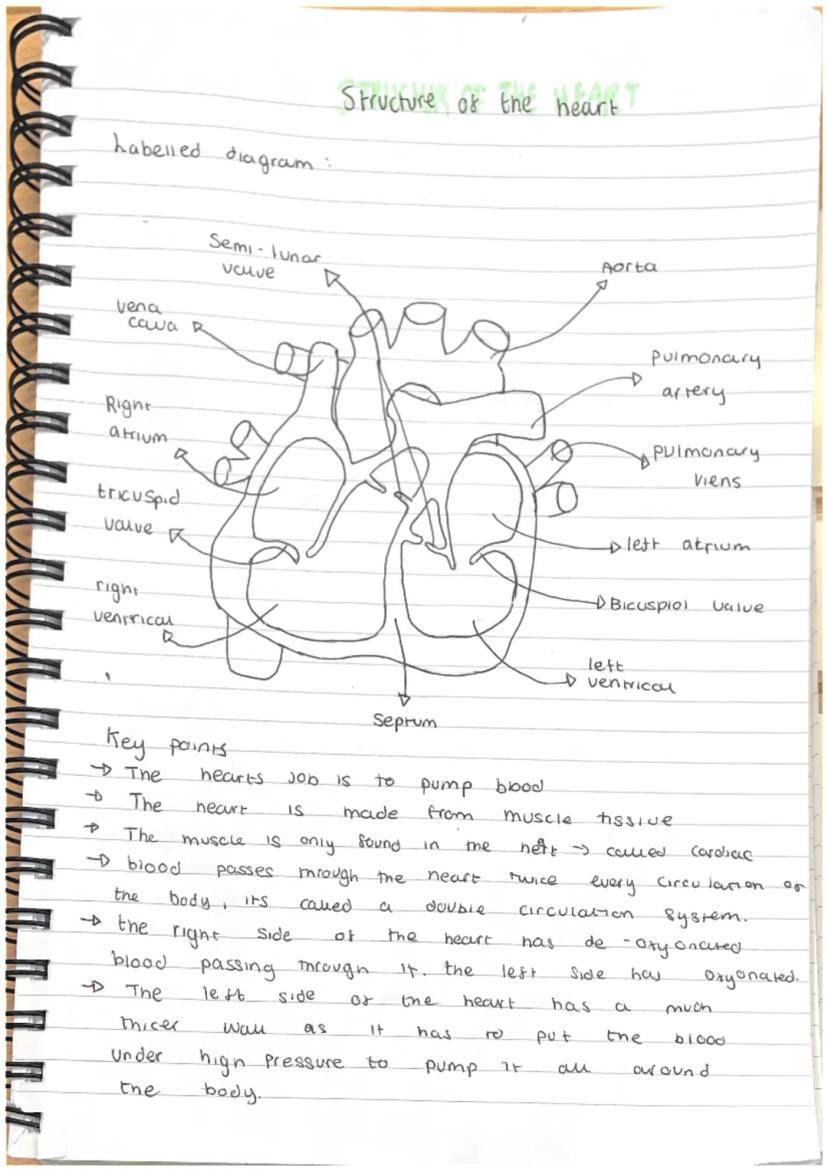 Structure of the heart
Labelled diagram :
Semi-lunar
valve
Aorta
vena
cava
Pulmonary
artery
Right
atrium
Pulmonary
viens
tricuspid
valve
left atrium
right
ventrical
Bicuspid valve
left
ventrical
Septum
Key points
→ The hearts job is to pump blood
→ The heart is made from muscle tissue
→ The muscle is only found in the heart → called cardiac
→ blood passes through the heart twice every circulation of
the body, its called a double circulation system.
→ the right side of the heart has de-oxyonated
blood passing through it. the left side has oxyonated.
→ The left side of the heart has a much
thicer wall as it has to put the blood
under high pressure to pump it all around
the body.